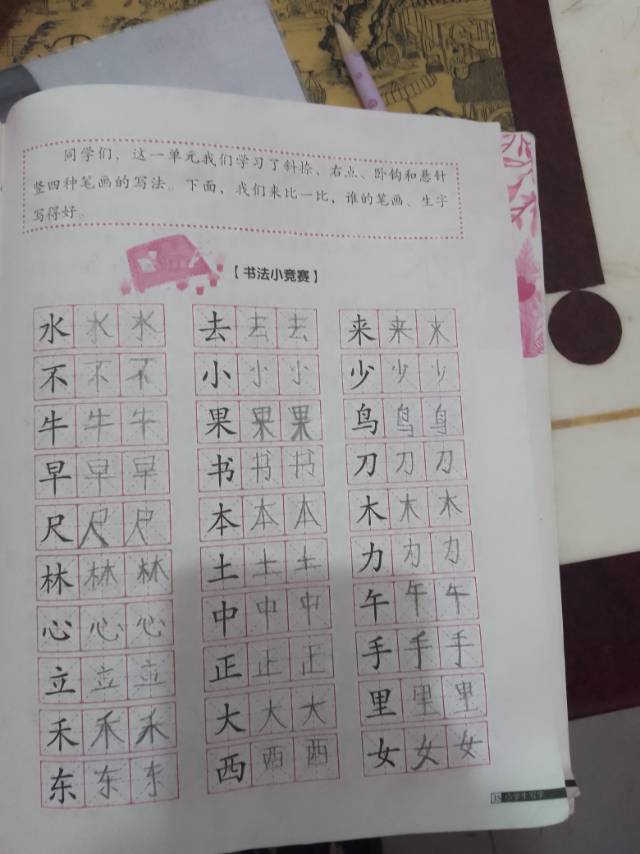 同学们，这一单元我们学习了斜捺、右点、卧钩和悬针
竖四种笔画的写法。下面，我们来比一比，谁的笔画、生字
写得好。
【书法小竞赛】
水水水 去去去 来来来
不不不 小小小 少少少
牛牛牛 果果果 鸟鸟鸟
早早早 书书书 刀刀刀
尺尺尺 本本本 木木木
林林林 土土土 力力力
心心心 中中中 午午午
立立立 正正正 手手手
禾禾禾 大大大 里里里
东东东 西西西 女女女
小学生写字